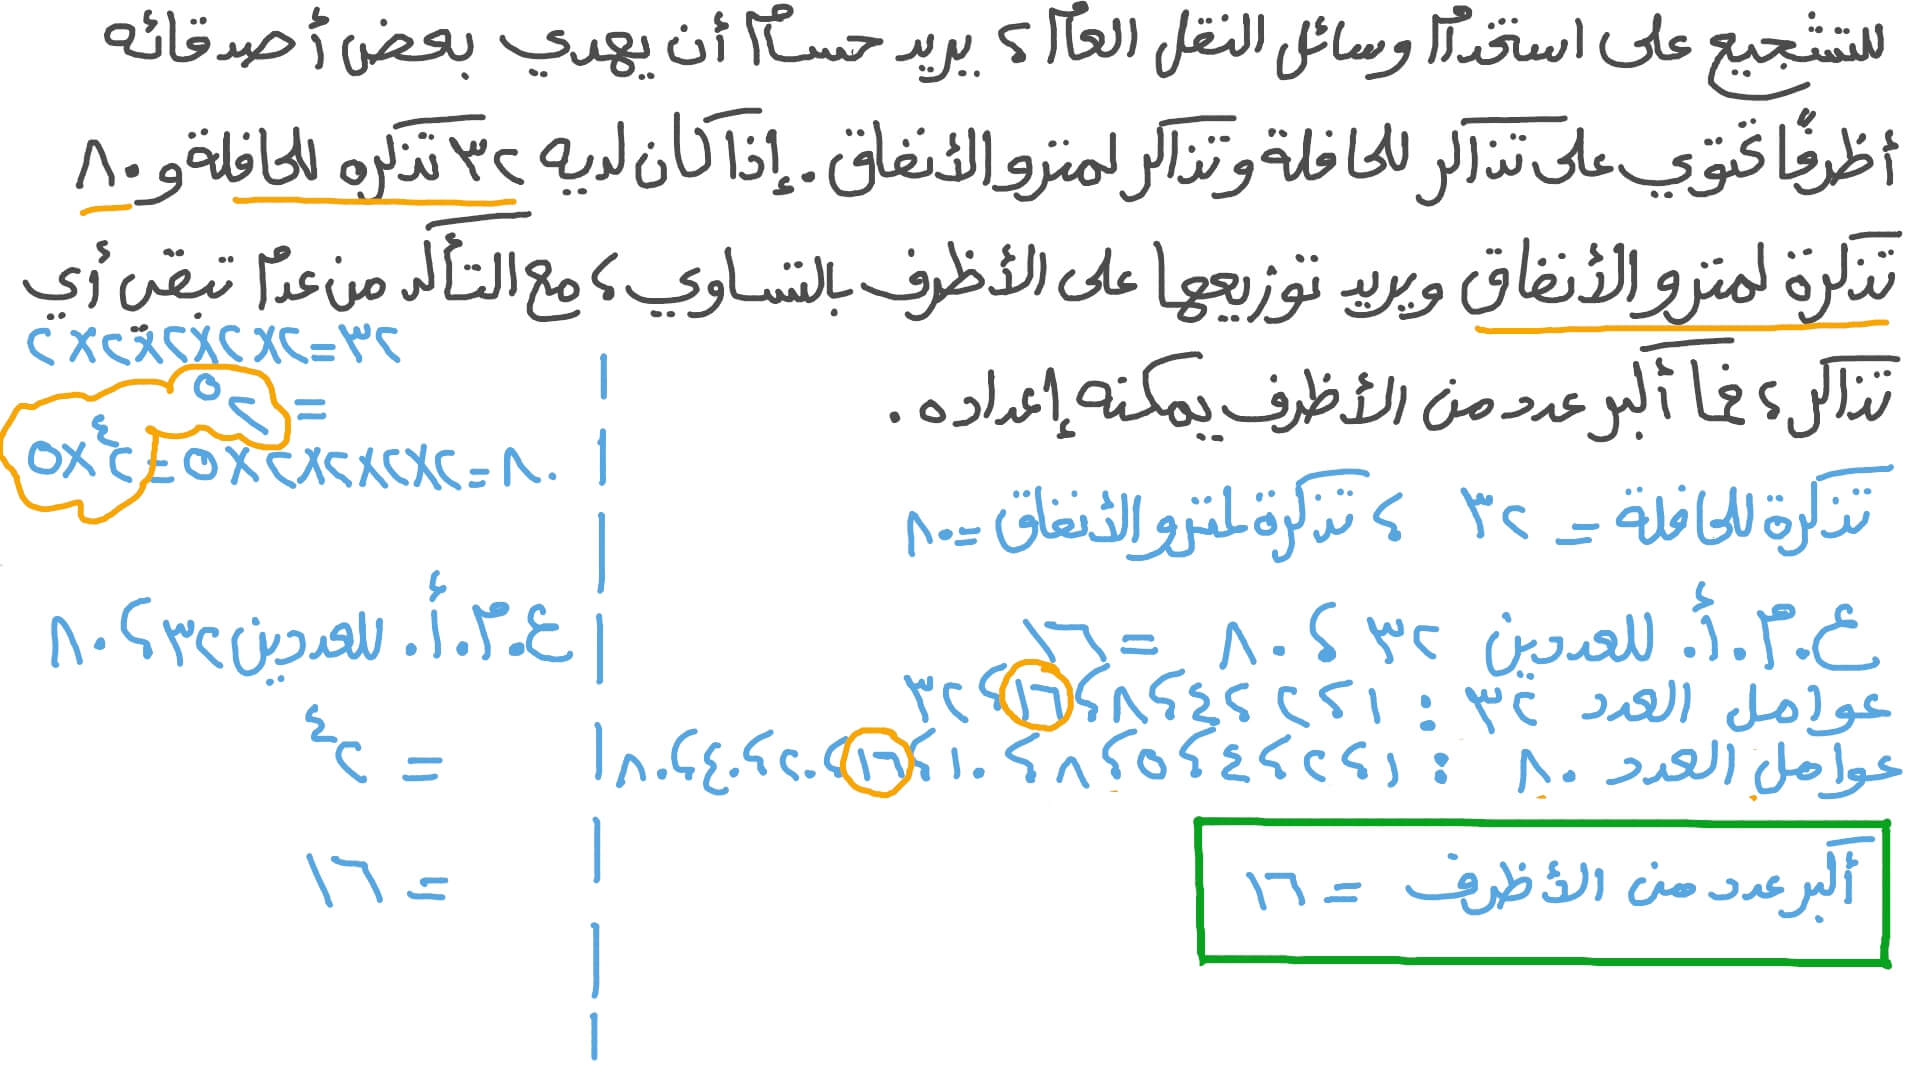 للتشجيع على استخدام وسائل النقل العام ، يريد حسام أن يهدي بعض أصدقائه
أظرفًا تحتوي على تذاكر للحافلة وتذاكر لمترو الأنفاق . إذا كان لديه ٣٢ تذكره للحافلة و ٨٠
تذكرة لمترو الأنفاق ويريد توزيعها على الأظرف بالتساوي ، مع التأكد من عدم تبقى أي
تذاكر ، فما أكبر عدد من الأظرف يمكنه إعداده .
تذكرة للحافلة = ٣٢ ، تذكرة لمترو الأنفاق = ٨٠
ع.م.أ. للعددين ٣٢ ، ٨٠ = ١٦
عوامل العدد ٣٢ : ١ ، ٢ ، ٤ ، ٨ ، ١٦ ، ٣٢
عوامل العدد ٨٠ : ١ ، ٢ ، ٤ ، ٥ ، ٨ ، ١٠ ، ١٦ ، ٢٠ ، ٤٠ ، ٨٠
أكبر عدد من الأظرف = ١٦
٣٢ = ٢ × ٢ × ٢ × ٢ × ٢
= ٢^٥
٨٠ = ٢ × ٢ × ٢ × ٢ × ٥ = ٢^٤ × ٥
ع.م.أ. للعددين ٣٢ ، ٨٠
= ٢^٤
= ١٦